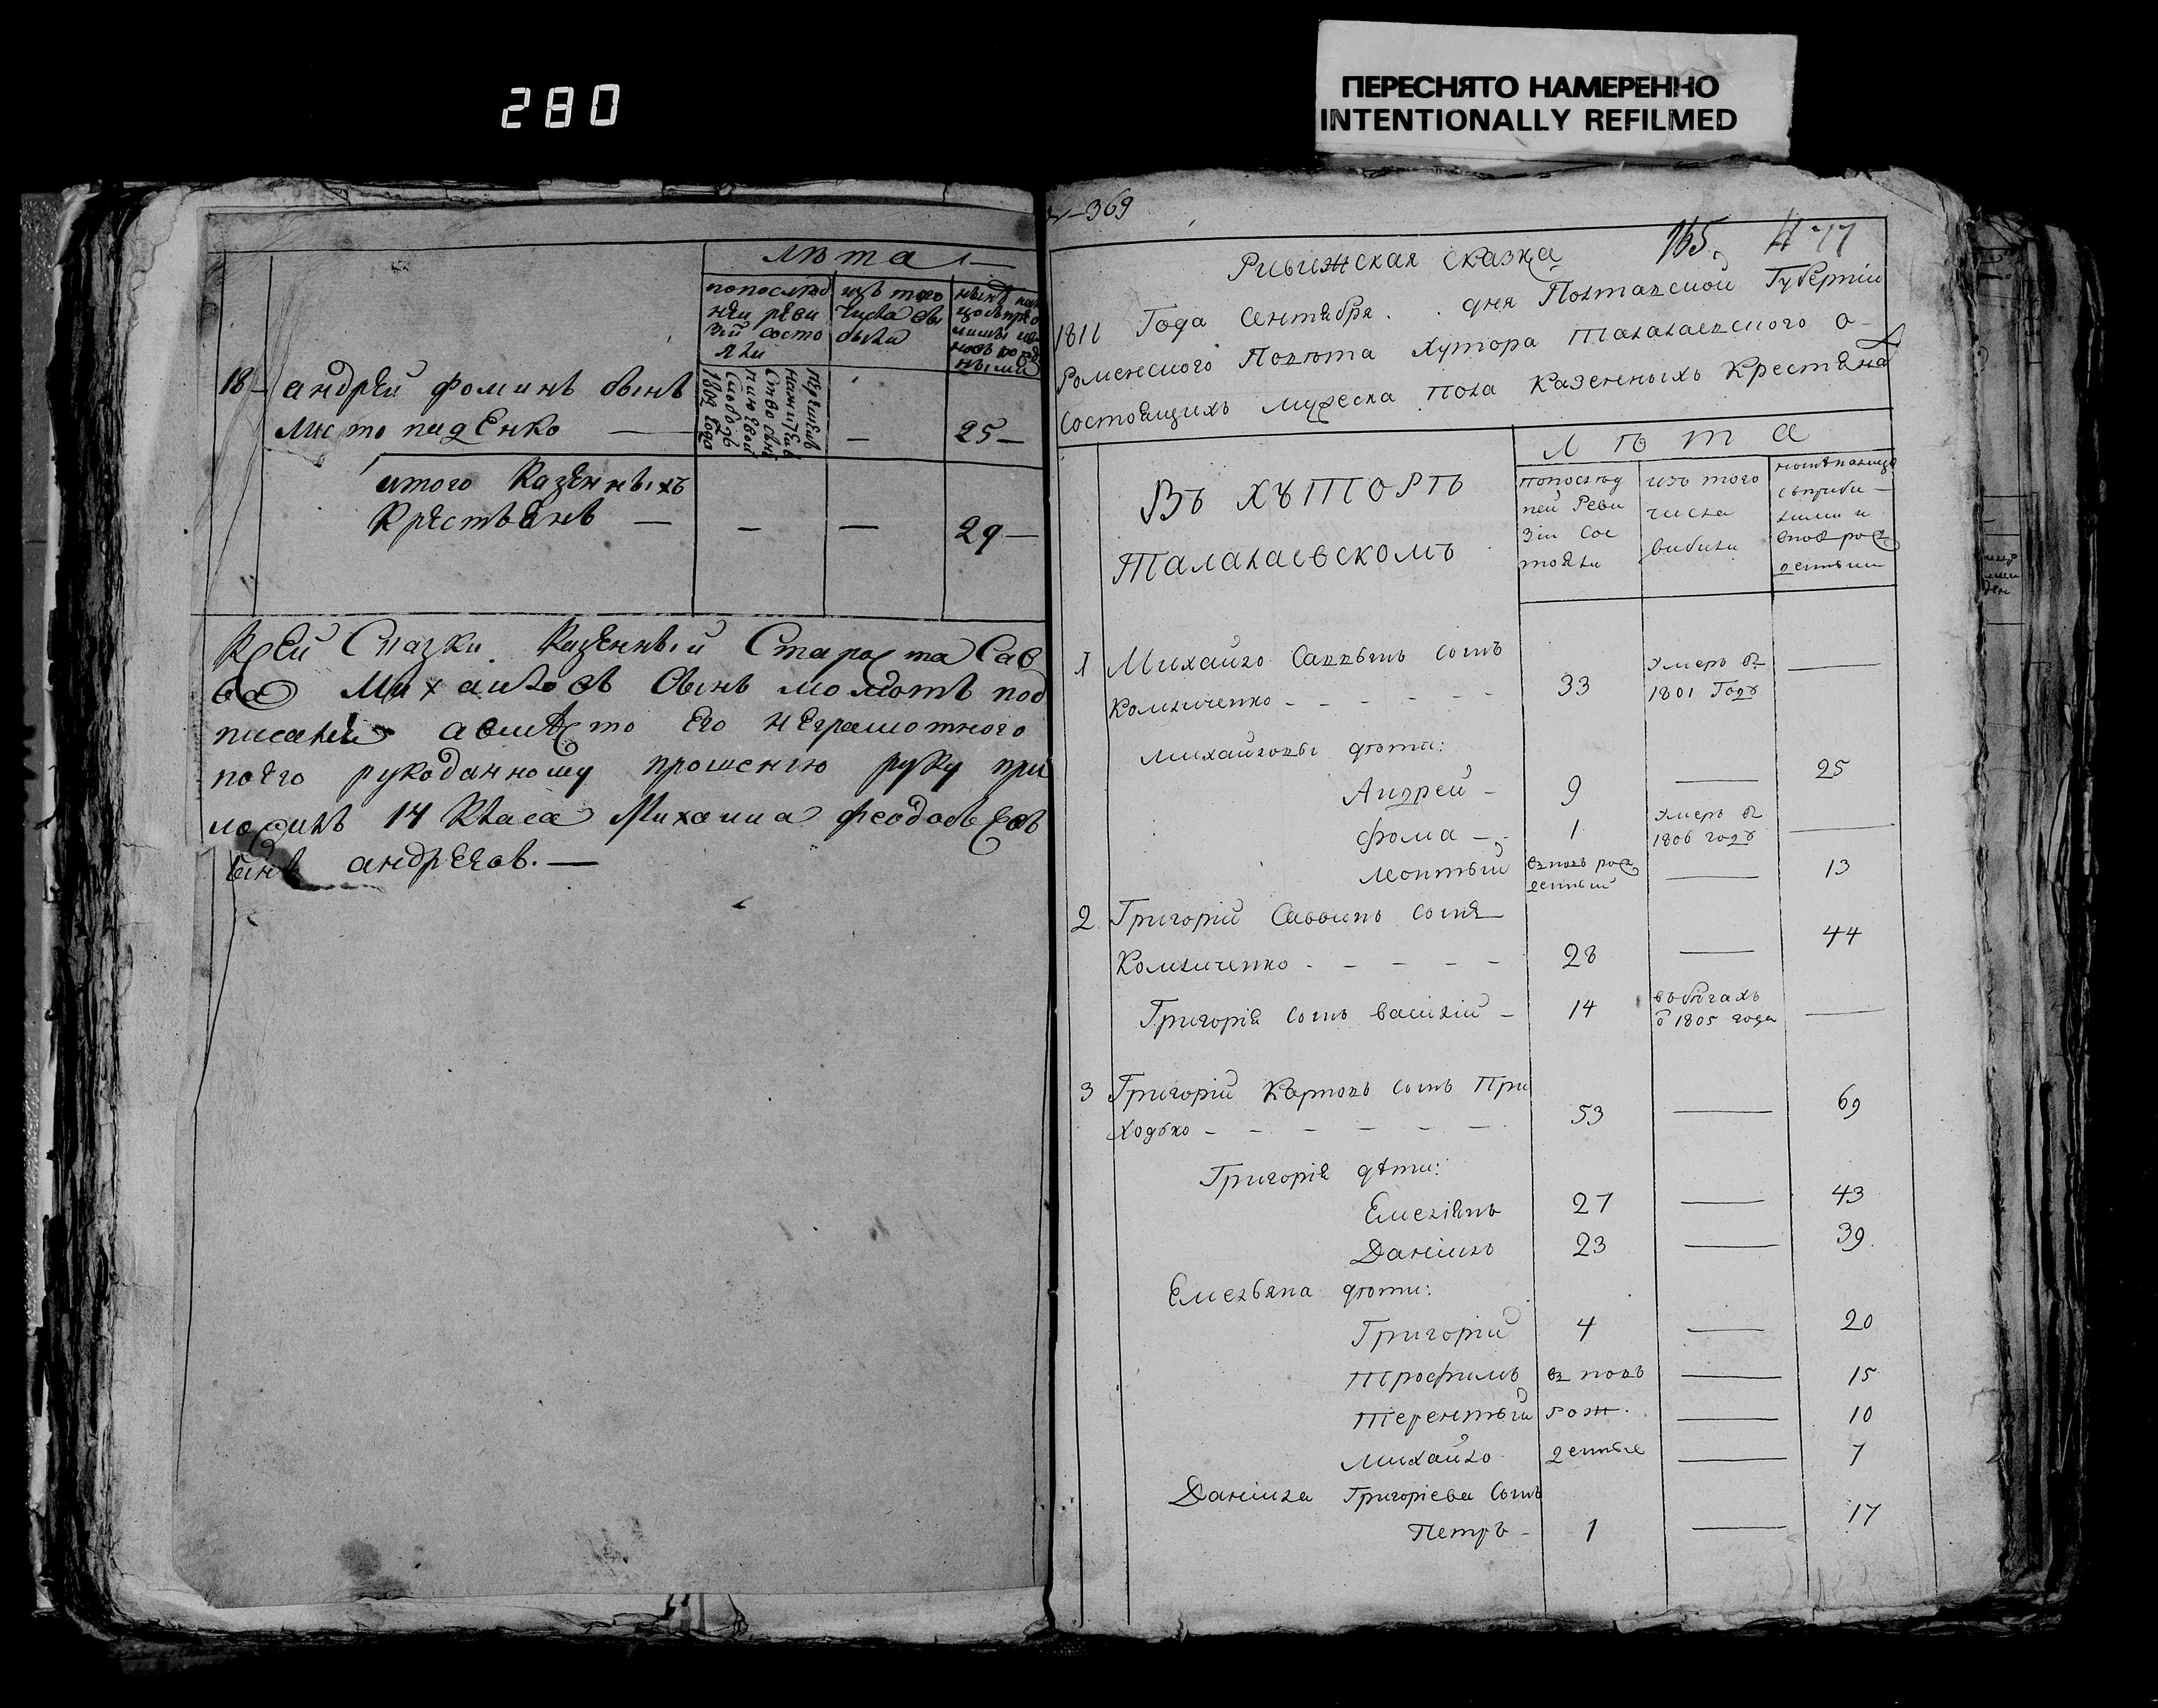 280
ПЕРЕСНЯТО НАМЕРЕННО
INTENTIONALLY REFILMED
лѣта
попослѣд
ней реви
зіи состо
яли
изъ того
числа вы
были
18 андрей фоминъ сынъ
Листопаденко — — 25 —
1802 года
итого казенныхъ
Крестьянъ — — — 29 —
Сказки казенный Староста Сав
ва Михайловъ сынъ под
писался авмѣсто его неграмотного
поего рукоданному прошению руку при
ложилъ 14 класа Михаила феодосѣевъ
сынъ андреев. —
369
165.
Ревижская сказка
1811 Года Сентября . . дня Полтавской Губерніи
Роменского Повѣта Хутора Талалаевского о
Состоящихъ мужеска пола Казенныхъ Крестьянъ
Въ хуторѣ
Талалаевскомъ
Л ѣ т а
попослѣд
ней Реви
зіи Сос
тояли
изъ того
числа
вибили
1 Михайло Саввинъ сынъ
Комличенко - - - - - 33 умеръ в 1801 Году —
Михайловы дѣти:
Андрей - 9 — 25
Фома - 1 умеръ в 1806 году —
Леонтий вновь рож денный — 13
2 Григорій Саввинъ сынъ
Комличенко - - - - - 28 — 44
Григорія сынъ василій - 14 въ бѣгахъ с 1805 года —
3 Григорій Карповъ сынъ При
ходько - - - - - - 53 — 69
Григорія дѣти:
Емеліянъ 27 — 43
Даніилъ 23 — 39.
Емельяна дѣти:
Григорій 4 — 20
Трофимъ в новь — 15
Терентий рож — 10
Михайло денные — 7
Даніила Григоріева Сынъ
Петръ - 1 — 17